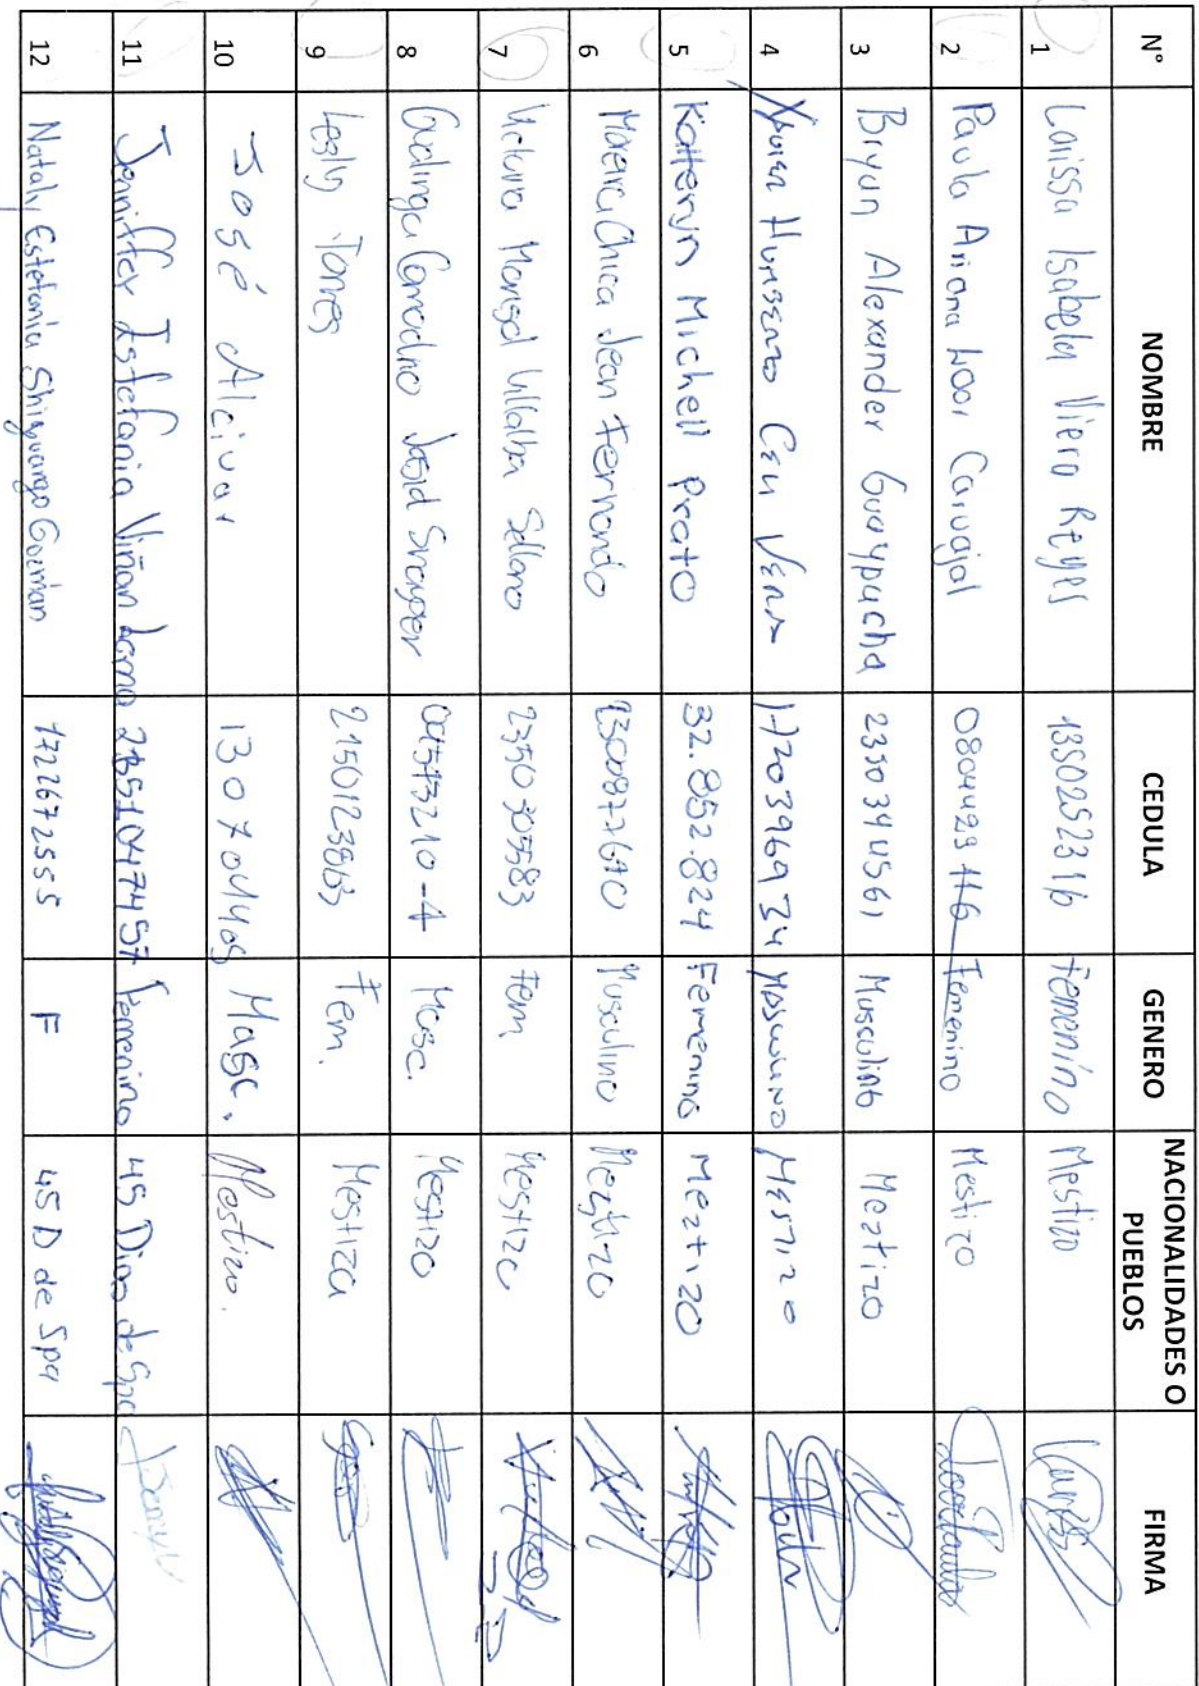 N° NOMBRE CEDULA GENERO NACIONALIDADES O PUEBLOS FIRMA
1 Larissa Isabela Viera Reyes 1350252316 Femenino Mestizo
2 Paula Ariana Loor Carvajal Femenino Mestizo
3 Bryan Alexander Guaypacha 2350344561 Masculino Meztizo
4 Humberto Vera 1720396934 Masculino Mestizo
5 Katteryn Michell Prato 32.852.824 Femenino Meztizo
6 Chica Jean Fernando Masculino Meztizo
7 Marisol Villalba 2350305583 Fem Mestiza
8 Josid Masc. Mestizo
9 Lesly Torres 2150123863 Fem. Mestiza
10 José Alcivar Masc. Mestizo.
11 Jenniffer Estefania Viñan Femenino 45 Dias de Spa
12 Nataly Estefania Shiguango Guaman 1722672555 F 45 D de Spa